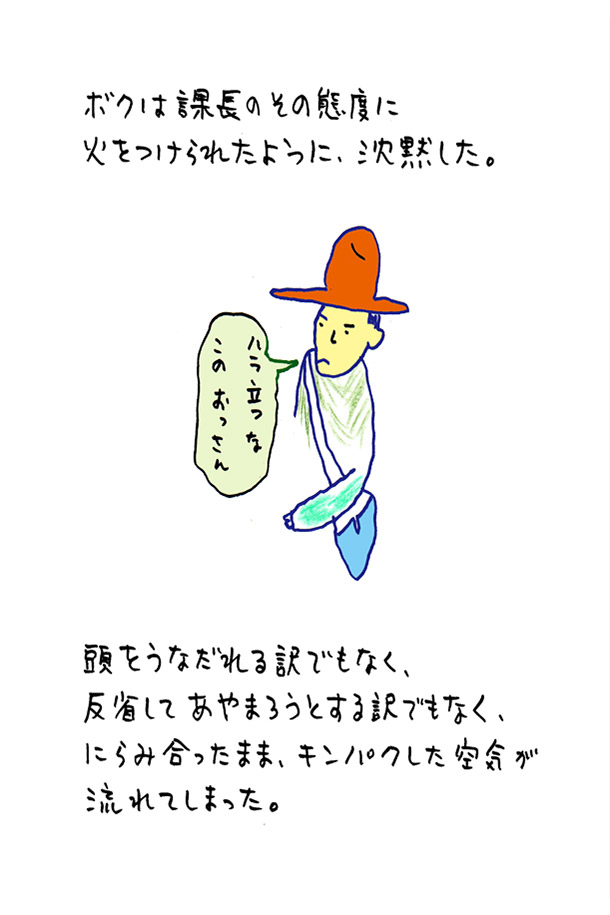 ボクは課長のその態度に
火をつけられたように、沈黙した。
ハラ立つな
このおっさん
頭をうなだれる訳でもなく、
反省してあやまろうとする訳でもなく、
にらみ合ったまま、キンパクした空気が
流れてしまった。